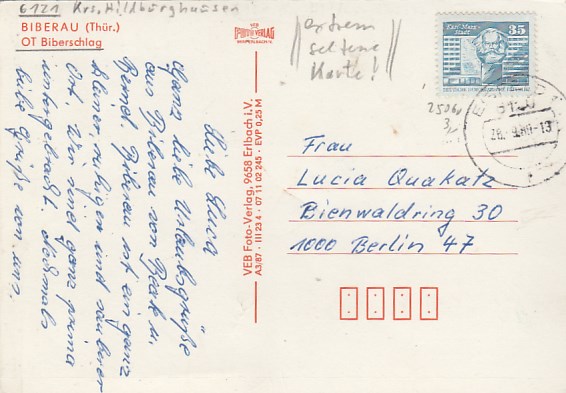 6121 Krs. Hildburghausen
BIBERAU (Thür.)
OT Biberschlag
VEB
FOTO VERLAG
extrem
seltene
Karte!
Karl-Marx-
Stadt
35
25061
28. 9. 88-13
Liebe Luca
Ganz liebe Urlaubsgrüße
aus Biberau von Beate u.
Bernd. Biberau ist ein ganz
kleiner, ruhigen und sauberer
Ort. Wir sind ganz prima
untergebracht. Nochmals
liebe Grüße von uns.
VEB Foto-Verlag, 9658 Erlbach i.V.
A3/87 · III 23 4 · 07 11 02 245 · EVP 0,25 M
Frau
Lucia Quakatz
Bienwaldring 30
1000 Berlin 47